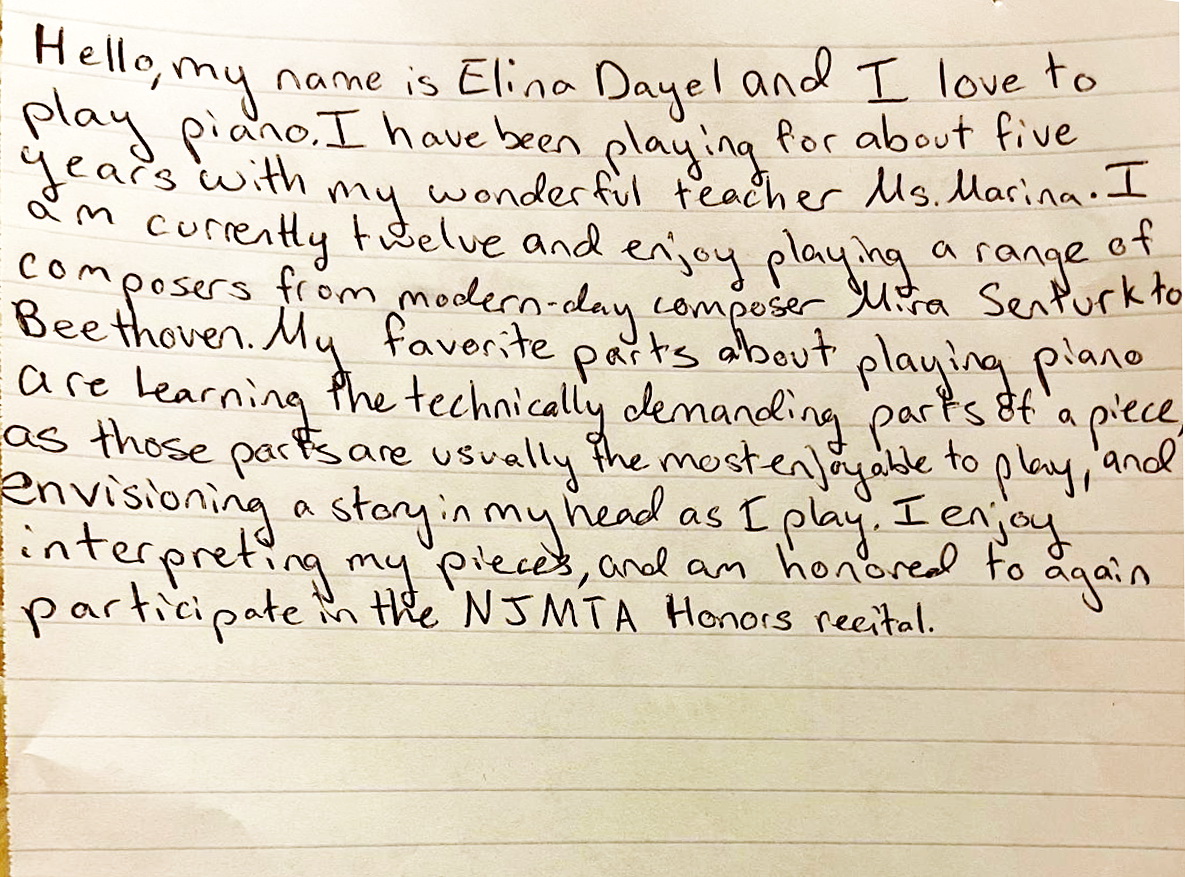 Hello, my name is Elina Dayel and I love to
play piano. I have been playing for about five
years with my wonderful teacher Ms. Marina. I
am currently twelve and enjoy playing a range of
composers from modern-day composer Mira Senturk to
Beethoven. My favorite parts about playing piano
are learning the technically demanding parts of a piece,
as those parts are usually the most enjoyable to play, and
envisioning a story in my head as I play. I enjoy
interpreting my pieces, and am honored to again
participate in the NJMTA Honors recital.